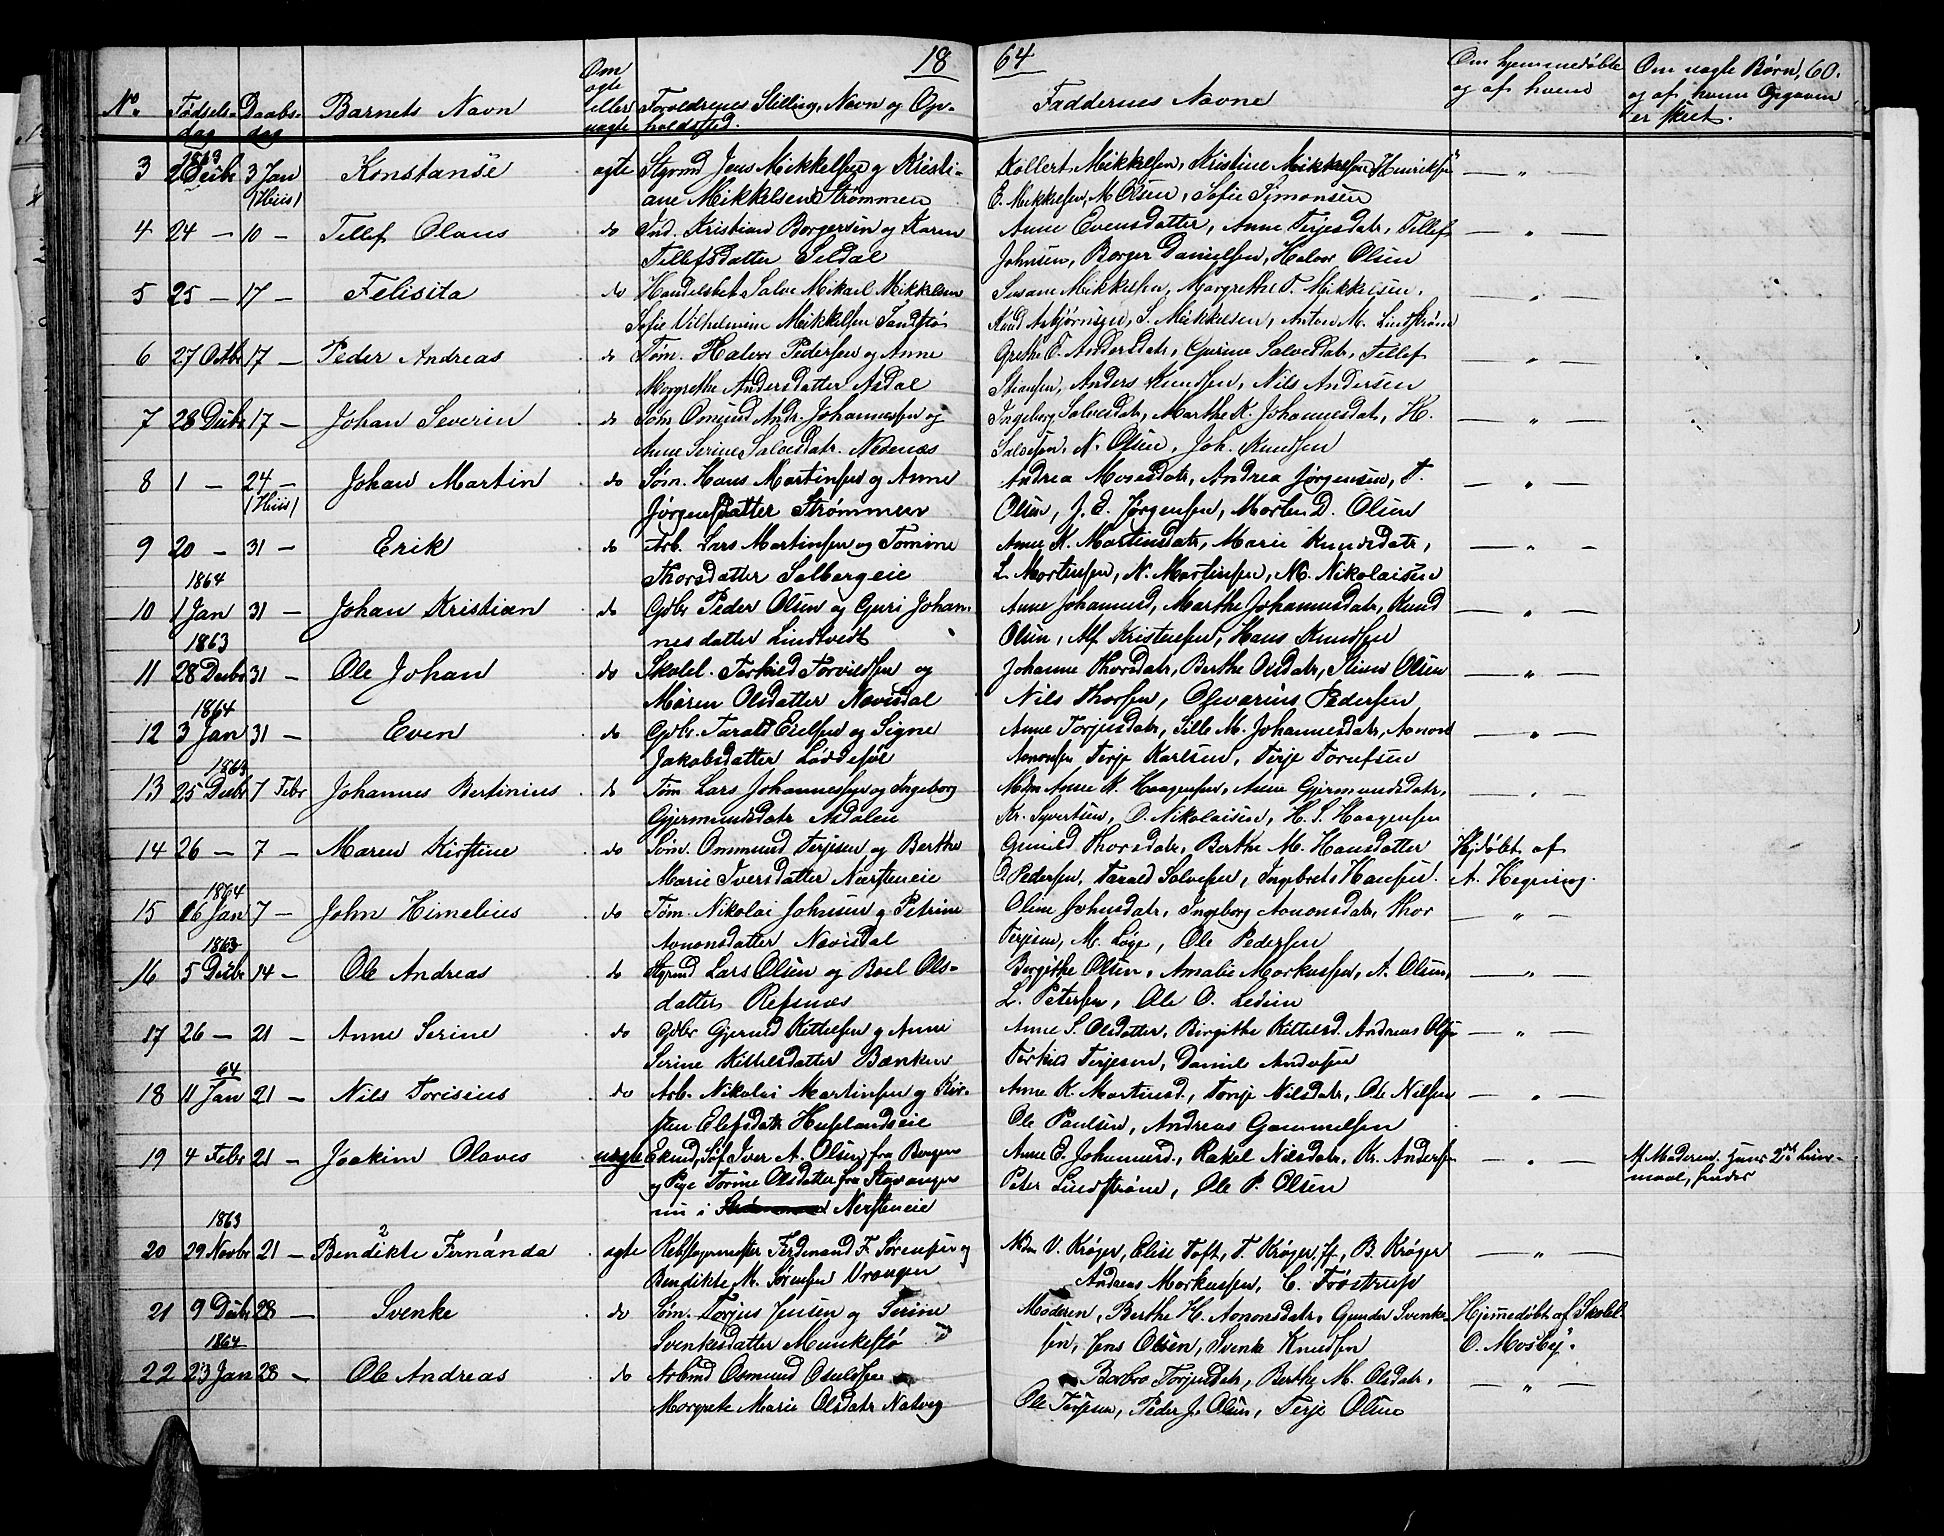 18 64
60.
No. Fødsels-dag Daabs-dag Barnets Navn Om ægte eller uægte Forældrenes Stilling, Navn og Op-holdssted. Faddernes Navne Om hjemmedøbte og af hvem Om uægte Børn, og af hvem Opgaven er skeet.
1863
3 2 Debr 3 Jan Konstanse ægte Styrmd Jens Mikkelsen og Kristi- Kollert Mikkelsen, Kristine Mikkelsen, Henriksen — " —
(Huus) ane Mikkelsen Strømmen E. Mikkelsen, M. Olsen, Sofie Simonsen
4 24 — 10 — Tellef Olaus do Ind. Kristian Borgersen og Karen Anne Evensdatter, Anne Terjesdatr, Tellef — " —
Tellefsdatter Seldal Johnsen, Børger Danielsen, Halvor Olsen
5 25 — 17 — Felisita do Handelsbet. Salve Mikael Mikkelsen Susane Mikkelsen, Margrethe T. Mikkelsen, — " —
Sofie Vilhelmine Mikkelsen Sandstø Knud Asbjørnsen, S. Mikkelsen, Anton M. Lindstrøm
6 27 Octbr 17 — Peder Andreas do Tøm. Halvor Pedersen og Anne Grethe E. Andersdatr, Gurine Salvesdatr, Tellef — " —
Margrethe Andersdatter Asdal Anders Knudsen, Nils Andersen
7 28 Debr 17 — Johan Severin do Søm Osmund Andr. Johannessen og Ingeborg Salvesdatr, Marthe K. Johannesdatr, H. — " —
Anne Serine Salvesdatr. Nedenæs Salvesen, N. Olsen, Joh. Knudsen
8 1 — 24 — Johan Martin do Søm. Hans Martinsen og Anne Andrea Mosesdatr, Andrea Jørgensen, T. — " —
(Huus) Jørgensdatter Strømmen Olsen, J. E. Jørgensen, Morten D. Olsen
9 20 — 31 — Erik do Arb. Lars Martinsen og Tomine Anne K. Martinsdatr, Marie Knudsdatr, — " —
1864 Thorsdatter Solbergeie L. Mortensen, N. Martinsen, N. Nikolaisen
10 1 Jan 31 — Johan Kristian do Gdbr Peder Olsen og Guri Johan- Anne Johannesd, Marthe Johannesdatr, Knud — " —
1863 nesdatter Lindtvedt Olsen, Alf Kristensen, Hans Knudsen
11 28 Debr 31 — Ole Johan do Skolel. Torkild Torvildsen og Johanne Thorsdatr, Berthe Olsdatr, Stines Olsen — " —
1864 Maren Olsdatter Novisdal Nils Thorsen, Olevarius Pedersen
12 3 Jan 31 — Even do Gdbr. Tarald Eielsen og Signe Anne Torjusdatr, Sille M. Johannesdatr, Aanon — " —
1863 Jakobsdatter Løddesøl Aanonsen Terje Karlsen, Terje Torufsen
13 25 Debr 7 Febr Johannes Bertinius do Tøm Lars Johannessen og Ingeborg Mdm Anne N. Haagensen, Anne Gjermundsdatr, — " —
Gjermundsdatr Asdalen Kr. Syvertsen, O. Nikolaisen, H. S. Haagensen
14 26 — 7 — Maren Kirstine do Søm. Ommund Terjesen og Berthe Gunild Thorsdatr, Berthe M. Hansdatter Hjdøbt af
1864 Marie Iversdatter Næsteneie O. Pedersen, Tarald Salvesen, Ingebret Hansen. A. Hegning.
15 6 Jan 7 — John Himelius do Tøm. Nikolai Johnsen og Petrine Oline Johnsdatr, Ingeborg Aanonsdatr, Thor — " —
1863 Aanonsdatter Novisdal Terjesen, M. Løge, Ole Pedersen
16 5 Debr 14 — Ole Andreas do Styrmd Lars Olsen og Boel Ols- Birgithe Olsen, Amalie Markussen, A. Olsen, — " —
datter Refsnæs L. Petersen, Ole O. Ledien
17 26 — 21 — Anne Serine do Gdbr Gjeruld Kittelsen og Anne Anne S. Olsdatter, Birgithe Kittelsd. Andreas Olsen — " —
64 Serine Kittelsdatter Bænken Torkild Terjesen, Daniel Andersen
18 11 Jan 21 — Nils Torisius do Arb. Nikolai Martinsen og Kir- Anne K. Martinsd., Tonje Nilsdatr, Ole Nilsen — " —
sten Olefsdatr Huslandseie Ole Paulsen, Andreas Gammelsen
19 4 Febr 21 — Joakim Olaves uægte Ekmd, Søf Iver A. Olsen fra Bergen Anne E. Johannesd., Rakel Nilsdatr, Kr. Andersen — " — Af Moderen. Hans 2det Leier-
og Pige Torine Olsdatter fra Stavanger Peter Lindstrøm, Ole P. Olsen maal, hendes
1863 nu i Nersteneie
20 29 Novbr 21 — Bendikte Fernanda ægte Rebslagermester Ferdinand F. Sørensen og Mdm V. Krøger, Elise Toft, T. Krøger, B. Krøger — " —
Bendikte M. Sørensen Vrængen Andreas Markussen, C. Trøstrup
21 9 Debr 28 — Svenke do Søm. Torjus Jensen og Serine Moderen, Berthe H. Aanonsdatr, Gunder Svenke- Hjemmedøbt af Skolel.
1864 Svenkesdatter Munkestø sen, Jens Olsen, Svenke Knudsen O. Mosbÿ.
22 23 Jan 28 — Ole Andreas do Arbmd Osmund Oselssen Barbro Torjusdatr, Berthe M. Olsdatr, — " —
Margrete Marie Olsdatr Natvig Ole Torjesen, Peder J. Olsen, Terje Olsen